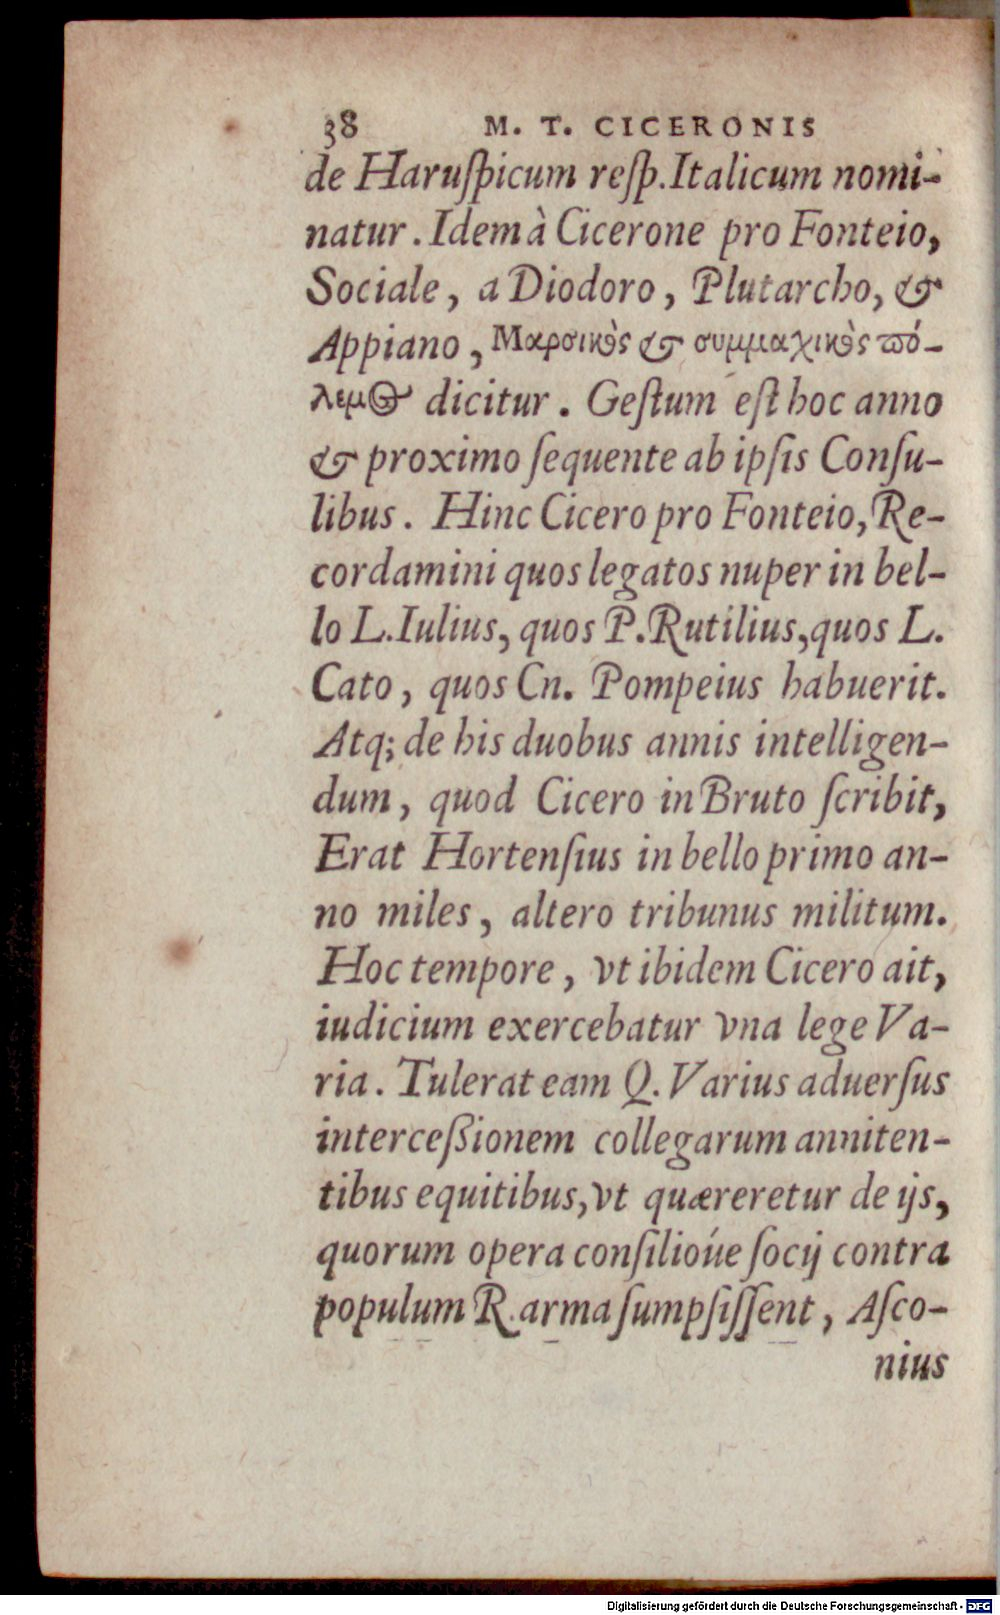 38 M. T. CICERONIS
de Haruſpicum reſp. Italicum nomi-
natur. Idem à Cicerone pro Fonteio,
Sociale, a Diodoro, Plutarcho, &
Appiano, Μαρσικὸς & συμμαχικὸς πό-
λεμος dicitur. Geſtum eſt hoc anno
& proximo ſequente ab ipſis Conſu-
libus. Hinc Cicero pro Fonteio, Re-
cordamini quos legatos nuper in bel-
lo L. Iulius, quos P. Rutilius, quos L.
Cato, quos Cn. Pompeius habuerit.
Atq; de his duobus annis intelligen-
dum, quod Cicero in Bruto ſcribit,
Erat Hortenſius in bello primo an-
no miles, altero tribunus militum.
Hoc tempore, vt ibidem Cicero ait,
iudicium exercebatur vna lege Va-
ria. Tulerat eam Q. Varius aduerſus
interceßionem collegarum anniten-
tibus equitibus, vt quæreretur de ijs,
quorum opera conſilioúe ſocij contra
populum R. arma ſumpſiſſent, Aſco-
nius
Digitalisierung gefördert durch die Deutsche Forschungsgemeinschaft - DFG